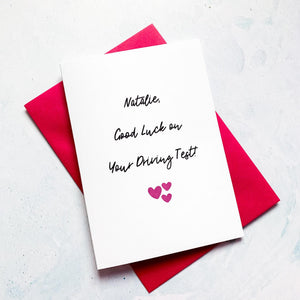 Natalie,
Good Luck on
Your Driving Test!